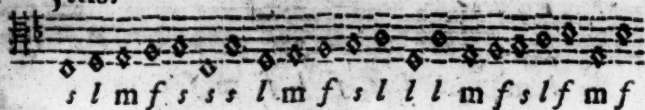 s l m f s s s l m f s l l l m f s l f m f